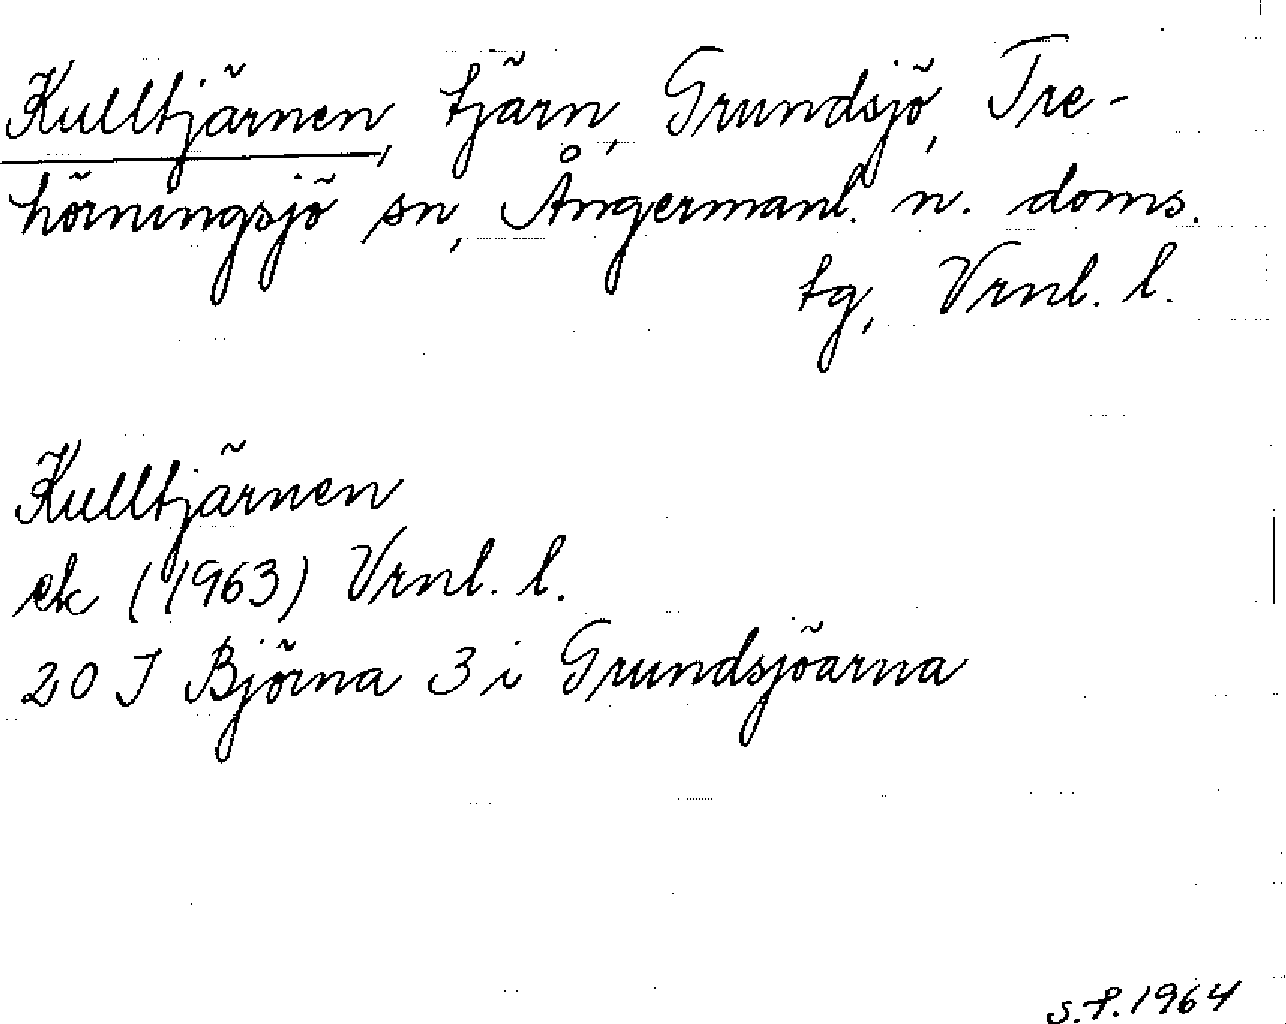 Kulltjärnen, tjärn, Grundsjö, Tre-
hörningsjö sn, Ångermanl. n. doms.
tg, Vrnl. l.
Kulltjärnen
ek (1963) Vrnl. l.
20 I Björna 3 i Grundsjöarna
S.P. 1964